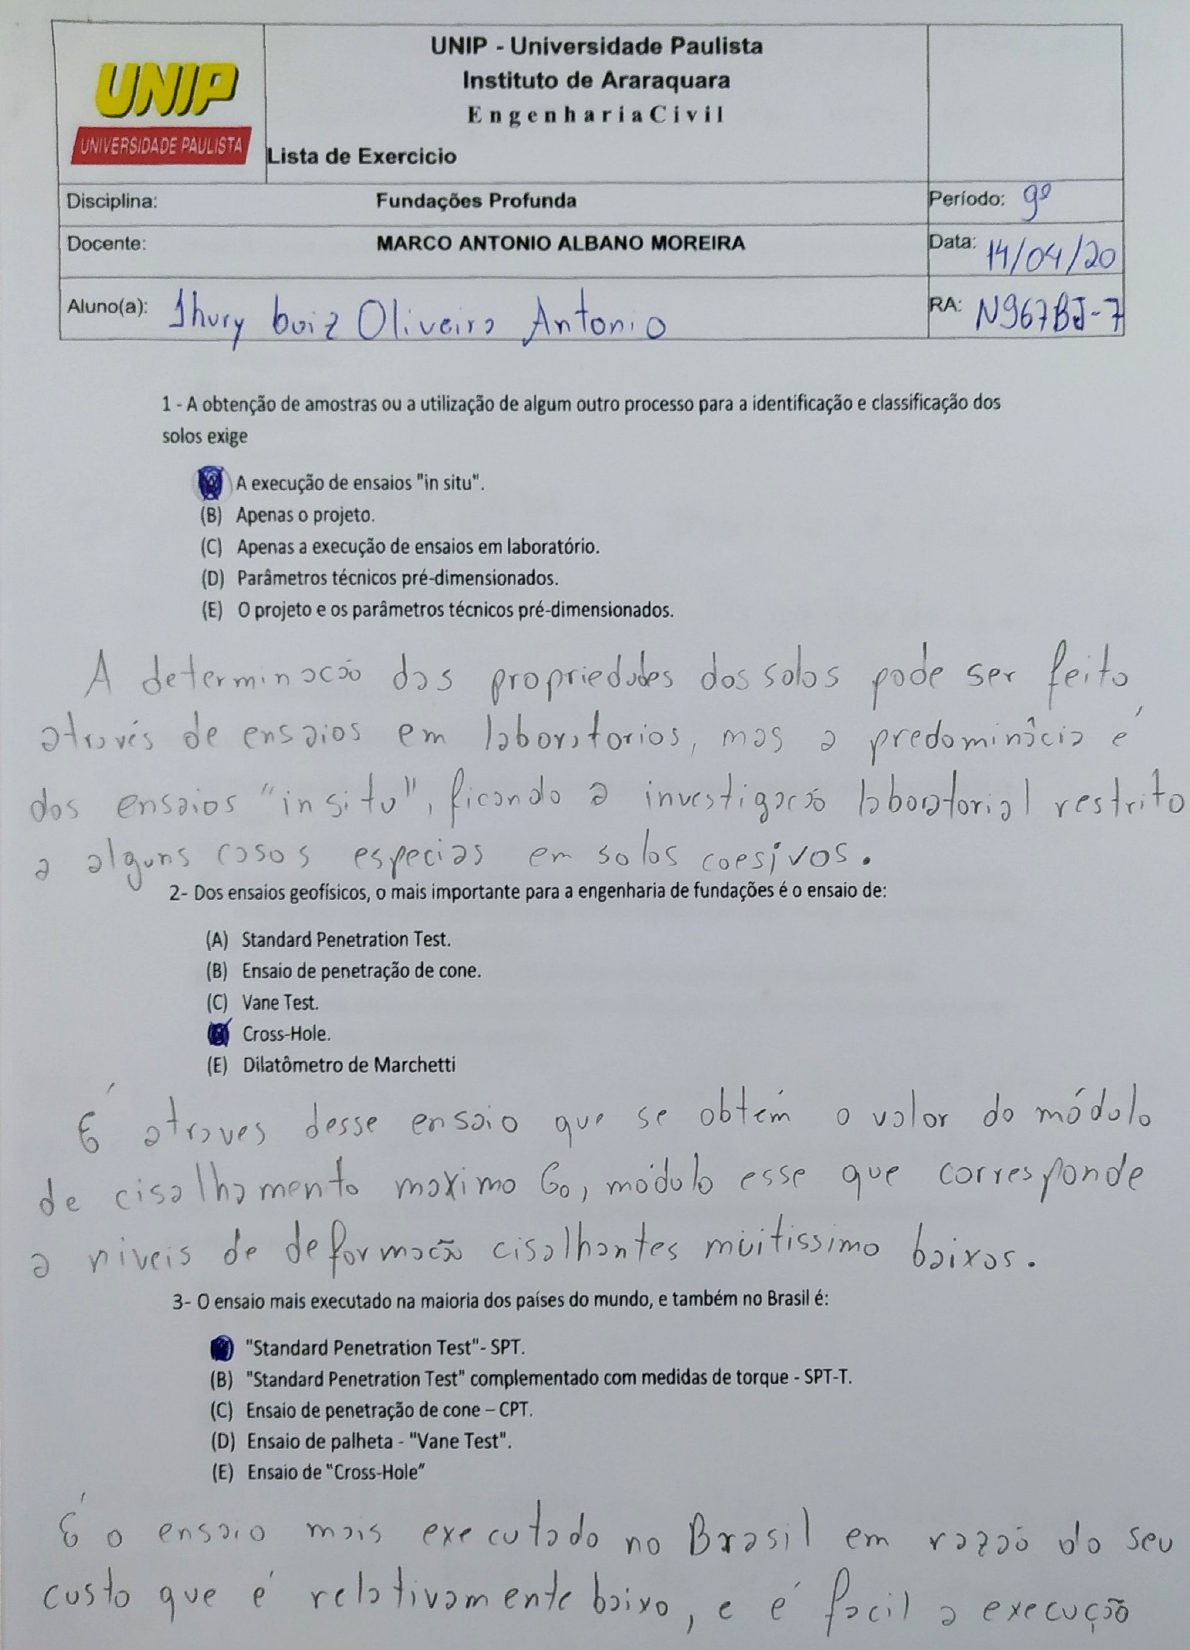 UNIP
UNIVERSIDADE PAULISTA
UNIP - Universidade Paulista
Instituto de Araraquara
EngenhariaCivil
Lista de Exercicio
Disciplina: Fundações Profunda Período: 9º
Docente: MARCO ANTONIO ALBANO MOREIRA Data: 14/04/20
Aluno(a): Jhury Luiz Oliveira Antonio RA: N967BJ-7
1 - A obtenção de amostras ou a utilização de algum outro processo para a identificação e classificação dos
solos exige
A execução de ensaios "in situ".
(B) Apenas o projeto.
(C) Apenas a execução de ensaios em laboratório.
(D) Parâmetros técnicos pré-dimensionados.
(E) O projeto e os parâmetros técnicos pré-dimensionados.
A determinacão das propriedades dos solos pode ser feito
através de ensaios em laboratorios, mas a predominâcia é
dos ensaios "in situ", ficando a investigacão laboratorial restrito
a alguns casos especias em solos coesivos.
2- Dos ensaios geofísicos, o mais importante para a engenharia de fundações é o ensaio de:
(A) Standard Penetration Test.
(B) Ensaio de penetração de cone.
(C) Vane Test.
Cross-Hole.
(E) Dilatômetro de Marchetti
É atraves desse ensaio que se obtém o valor do módulo
de cisalhamento maximo Go, módulo esse que corresponde
a níveis de deformacão cisalhantes muitissimo baixos.
3- O ensaio mais executado na maioria dos países do mundo, e também no Brasil é:
"Standard Penetration Test"- SPT.
(B) "Standard Penetration Test" complementado com medidas de torque - SPT-T.
(C) Ensaio de penetração de cone – CPT.
(D) Ensaio de palheta - "Vane Test".
(E) Ensaio de "Cross-Hole"
É o ensaio mais executado no Brasil em razão do seu
custo que é relativamente baixo, e é facil a execução